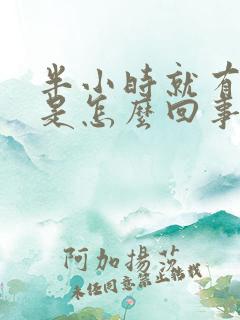 半小時就有
是怎麼回事
阿加揚莎
未經同意禁止轉載